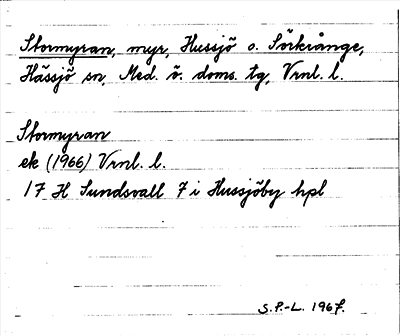 Stormyran, myr, Hussjö o. Sörkrånge,
Hässjö sn, Med. ö. doms. tg, Vrnl. l.
Stormyran
ek (1966) Vrnl. l.
17 H Sundsvall 7 i Hussjöby hpl
S.P.-L. 1967.